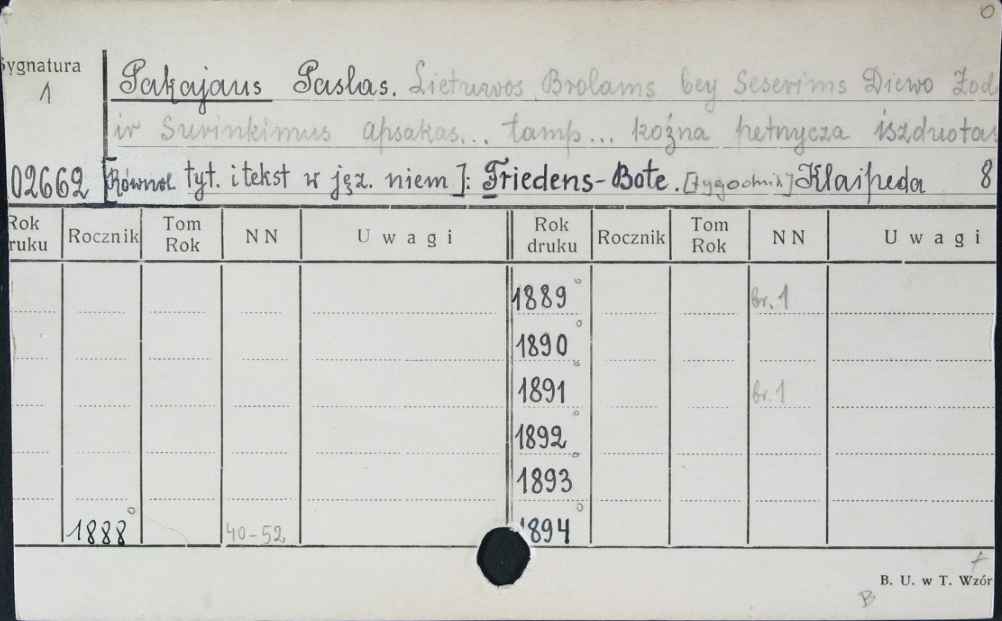 0
Sygnatura
1
Pakajaus Paslas. Lietuwos Brolams bey Seserims Diewo Żod
ir Surinkimus apsakas... tamp... kożna petnycza iszduotas
02662 [Równol. tyt. i tekst w jęz. niem]: Friedens-Bote. [tygodnik] Kłaipeda 8
Rok druku Rocznik Tom Rok NN Uwagi Rok druku Rocznik Tom Rok NN Uwagi
1889 br. 1
1890
1891 br. 1
1892
1893
1888 40-52 1894
B. U. w T. Wzór
B